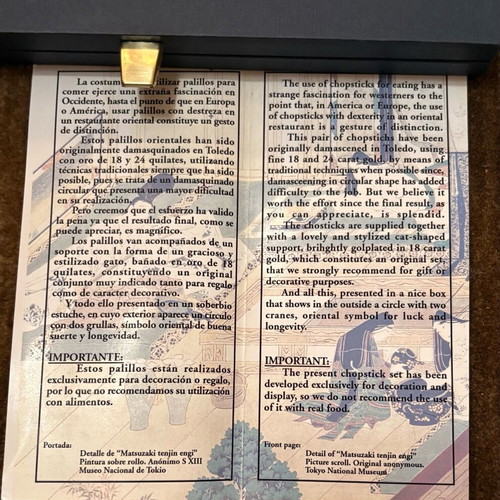 La costum ilizar palillos para
comer ejerce una extraña fascinación en
Occidente, hasta el punto de que en Europa
o América, usar palillos con destreza en
un restaurante oriental constituye un gesto
de distinción.
Estos palillos orientales han sido
originalmente damasquinados en Toledo
con oro de 18 y 24 quilates, utilizando
técnicas tradicionales siempre que ha sido
posible, pues se trata de un damasquinado
circular que presenta una mayor dificultad
en su realización.
Pero creemos que el esfuerzo ha valido
la pena ya que el resultado final, como se
puede apreciar, es magnífico.
Los palillos van acompañados de un
soporte con la forma de un gracioso y
estilizado gato, bañado en oro de 18
quilates, constituyendo un original
conjunto muy indicado tanto para regalo
como de caracter decorativo.
Y todo ello presentado en un soberbio
estuche, en cuyo exterior aparece un círculo
con dos grullas, símbolo oriental de buena
suerte y longevidad.
IMPORTANTE:
Estos palillos están realizados
exclusivamente para decoración o regalo,
por lo que no recomendamos su utilización
con alimentos.
Portada:
Detalle de "Matsuzaki tenjin engi"
Pintura sobre rollo. Anónimo S XIII
Museo Nacional de Tokio
The use of chopsticks for eating has a
strange fascination for westerners to the
point that, in America or Europe, the use
of chopsticks with dexterity in an oriental
restaurant is a gesture of distinction.
This pair of chopstichs have been
originally damascened in Toledo, using
fine 18 and 24 carat gold, by means of
traditional techniques when possible since,
damasceening in circular shape has added
difficulty to the job. But we believe it
worth the effort since the final result, as
you can appreciate, is splendid.
The chosticks are supplied together
with a lovely and stylized cat-shaped
support, brihghtly golplated in 18 carat
gold, which constitutes an original set,
that we strongly recommend for gift or
decorative purposes.
And all-this, presented in a nice box
that shows in the outside a circle with two
cranes, oriental symbol for luck and
longevity.
IMPORTANT:
The present chopstick set has been
developed exclusively for decoration and
display, so we do not recommend the use
of it with real food.
Front page:
Detail of "Matsuzaki tenjin engi"
Picture scroll. Original anonymous.
Tokyo National Museum